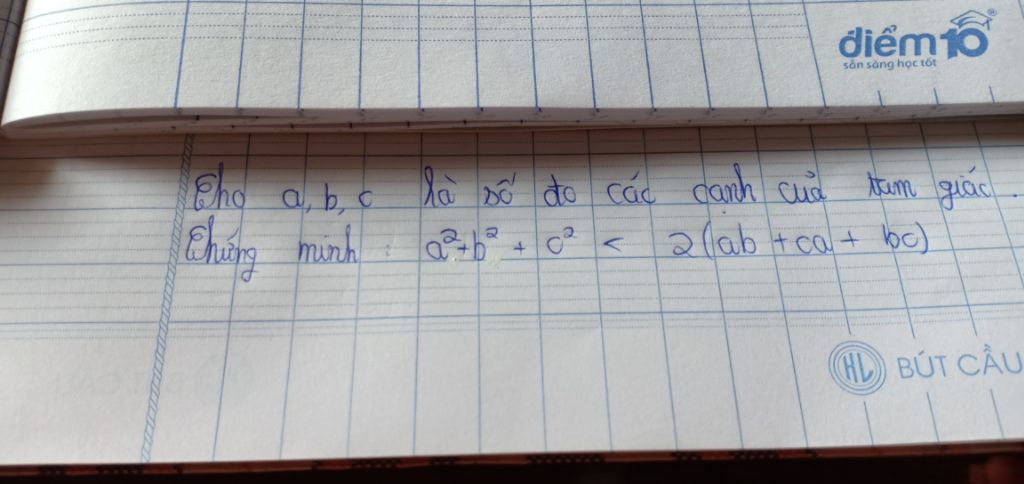 điểm10
sẵn sàng học tốt
Cho a, b, c là số đo các cạnh của tam giác.
Chứng minh : a²+b² + c² < 2(ab +ca + bc)
HL BÚT CẦU